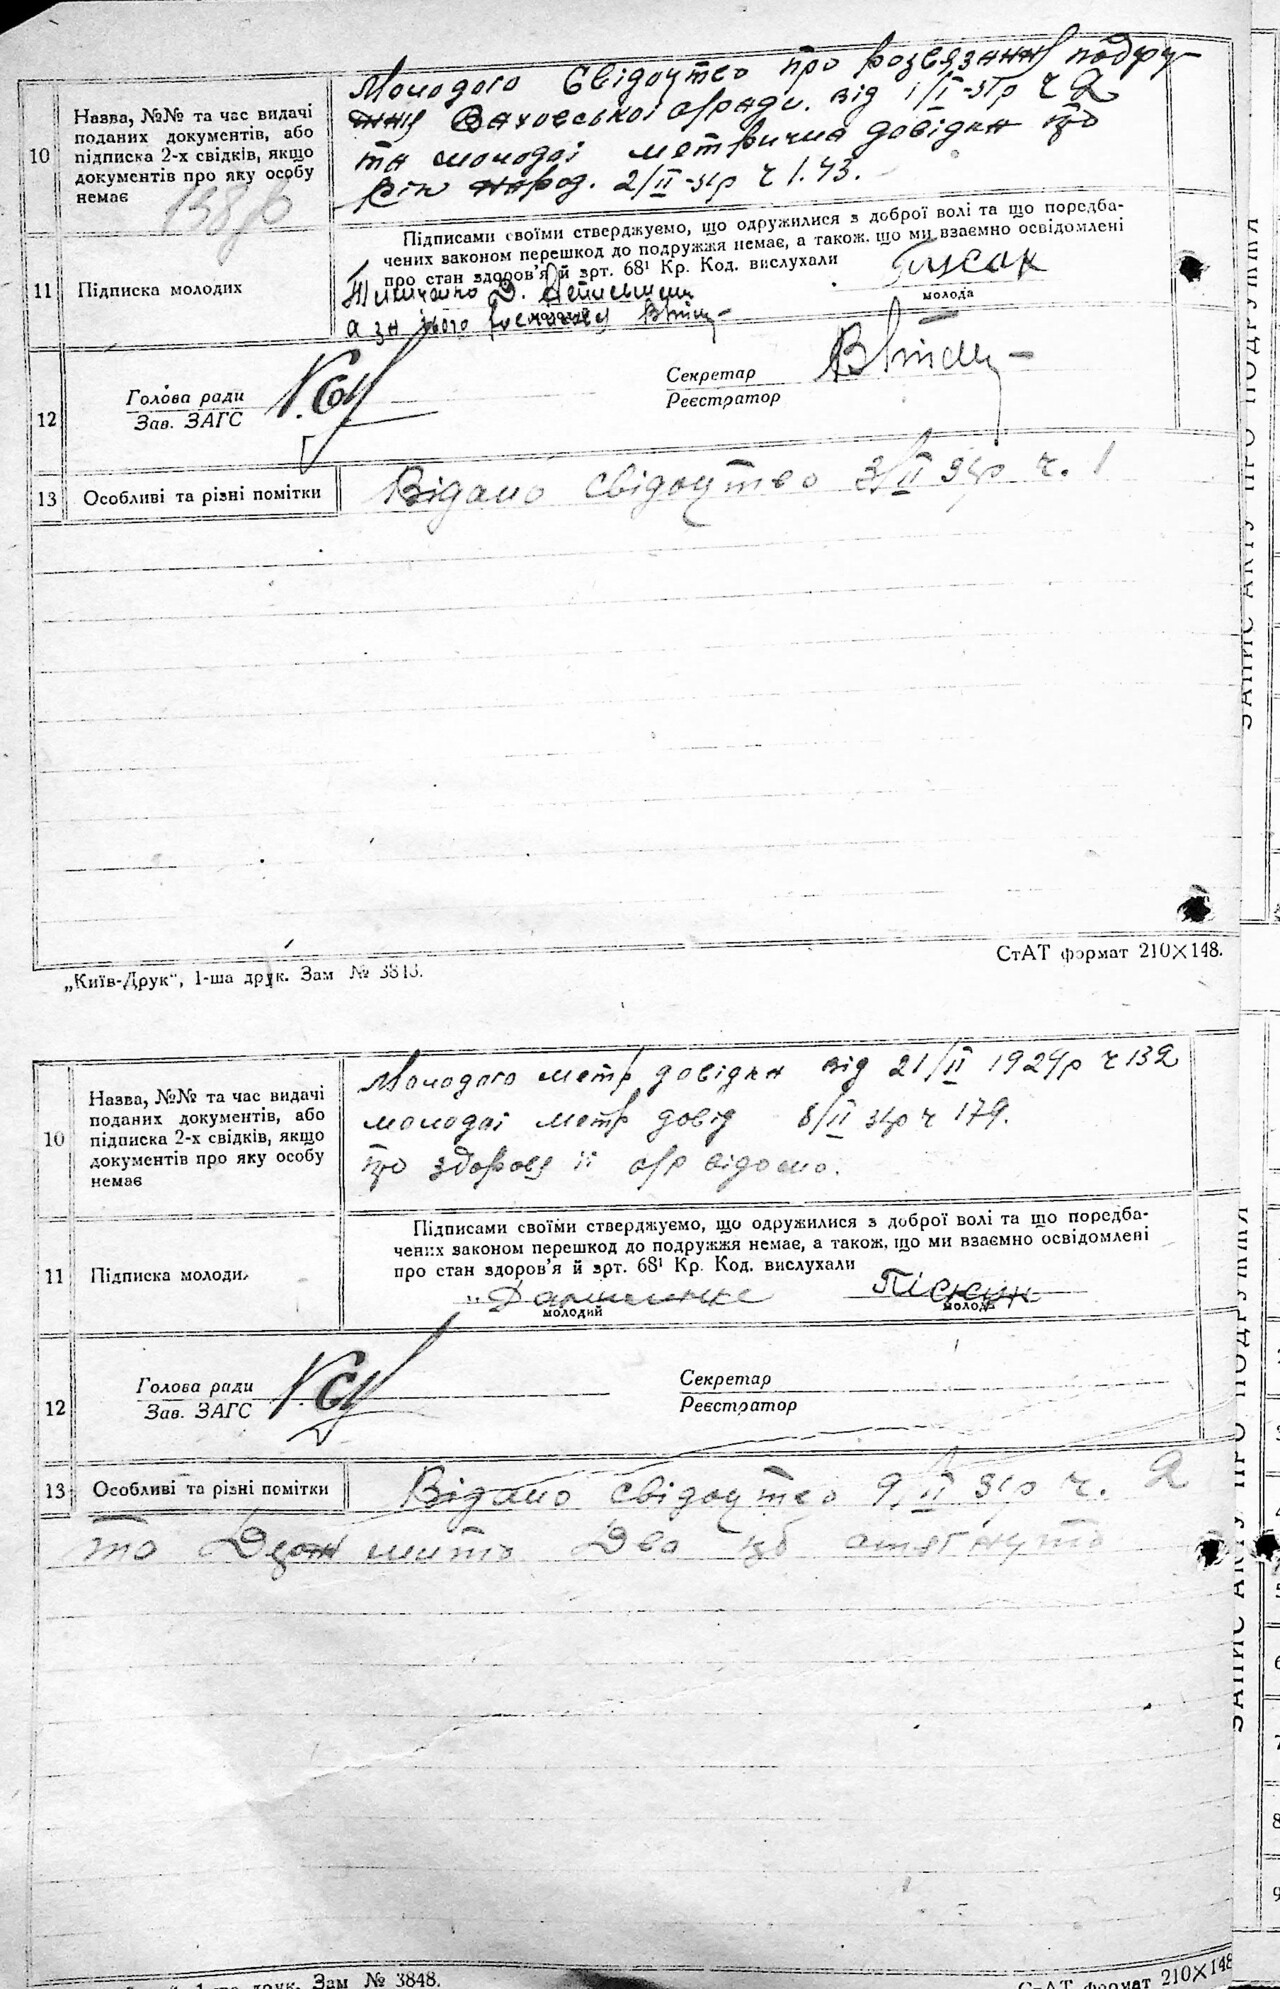 10
Назва, №№ та час видачі
поданих документів, або
підписка 2-х свідків, якщо
документів про яку особу
немає
Молодого Свідоцтво про розвязання подру-
жжя сільради. від 1/II-31р ч 2
та молодоі метрична довідка що
рік народ. 2/II-31р ч 1.43.
11
Підписка молодих
Підписами своїми стверджуємо, що одружилися з доброї волі та що передба-
чених законом перешкод до подружжя немає, а також, що ми взаємно освідомлені
про стан здоров'я й зрт. 68¹ Кр. Код. вислухали
Гусак
молода
а за його
12
Голова ради
Зав. ЗАГС
Секретар
Реєстратор
13
Особливі та різні помітки
Відано свідоцтво 3/II 31р ч. 1
„Київ-Друк", 1-ша друк. Зам № 3813.
СтАТ формат 210×148.
10
Назва, №№ та час видачі
поданих документів, або
підписка 2-х свідків, якщо
документів про яку особу
немає
Молодого метр довідка від 21/II 1929р ч 132
молодоі метр довід 8/II 31р ч 179.
що здоровя іі відомо.
11
Підписка молодих
Підписами своїми стверджуємо, що одружилися з доброї волі та що передба-
чених законом перешкод до подружжя немає, а також, що ми взаємно освідомлені
про стан здоров'я й зрт. 68¹ Кр. Код. вислухали
молодий
Піскун
молода
12
Голова ради
Зав. ЗАГС
Секретар
Реєстратор
13
Особливі та різні помітки
Відано свідоцтво 9/II 31р ч. 2
то Держ мито Два стягнуто
друк. Зам № 3848.
СтАТ формат 210×148
ЗАПИС АКТУ ПРО ПОДРУЖЖЯ
ЗАПИС АКТУ ПРО ПОДРУЖЖЯ
6
7
8
9